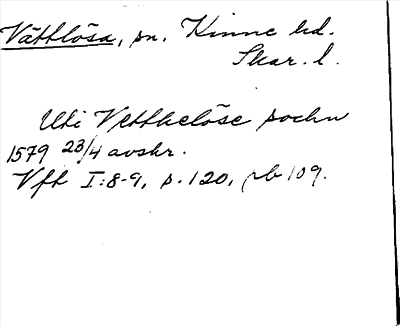 Vättlösa, sn. Kinne hd.
Skar. l.
Uti Vettheløse sochn
1579 23/4 avskr.
Vft I:8-9, s. 120, rb 109.